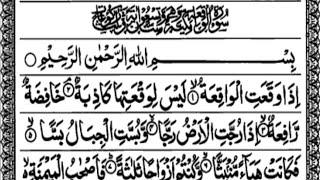 بِسْمِ اللهِ الرَّحْمٰنِ الرَّحِيْمِ
اِذَا وَقَعَتِ الْوَاقِعَةُ ۙ﴿۱﴾ لَيْسَ لِوَقْعَتِهَا كَاذِبَةٌ ۘ﴿۲﴾ خَافِضَةٌ
رَّافِعَةٌ ۙ﴿۳﴾ اِذَا رُجَّتِ الْاَرْضُ رَجًّا ۙ﴿۴﴾ وَّبُسَّتِ الْجِبَالُ بَسًّا ۙ﴿۵﴾
فَكَانَتْ هَبَآءً مُّنْۢبَثًّا ۙ﴿۶﴾ وَّكُنْتُمْ اَزْوَاجًا ثَلٰثَةً ؕ﴿۷﴾ فَاَصْحٰبُ الْمَيْمَنَةِ